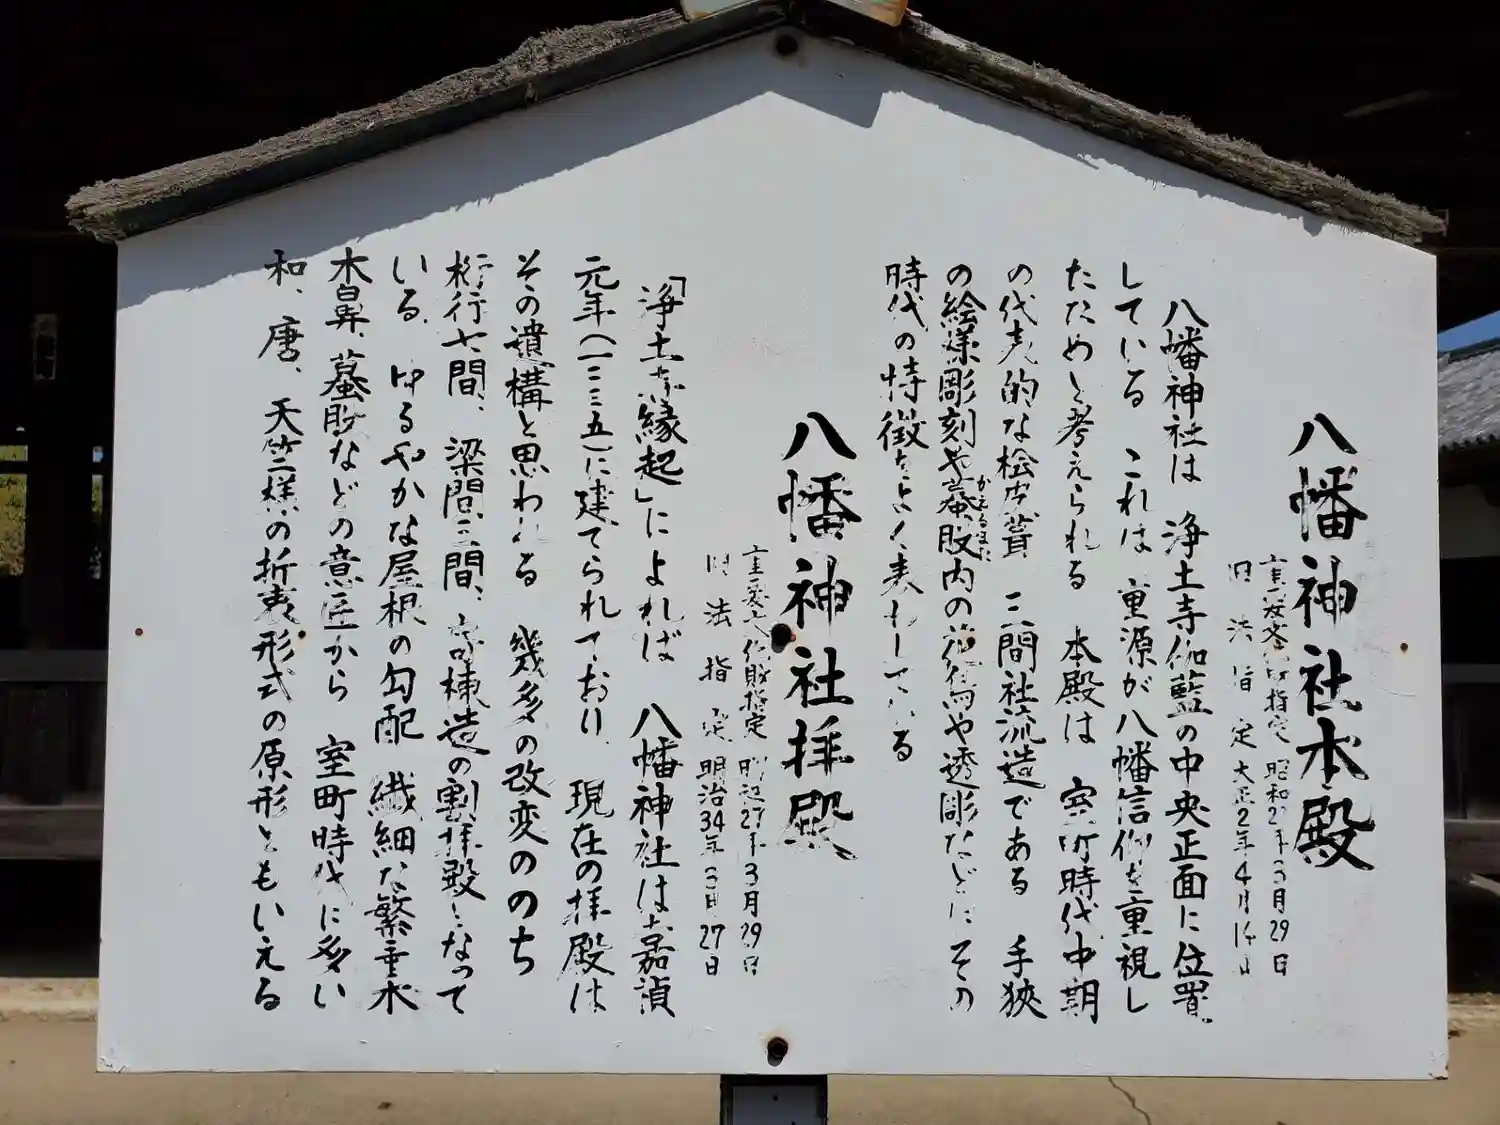 八幡神社本殿
重要文化財指定 昭和27年3月29日
旧法指定 大正2年4月14日
八幡神社は 浄土寺伽藍の中央正面に位置
している これは 重源が八幡信仰を重視し
たためと考えられる 本殿は 室町時代中期
の代表的な桧皮葺 三間社流造である 手狭
の絵様彫刻や蟇股内の や透彫などに その
かえるまた
時代の特徴をよく表わしている
八幡神社拝殿
重要文化財指定 昭和27年3月29日
旧法指定 明治34年3月27日
「浄土寺縁起」によれば 八幡神社は嘉禎
元年(一二三五)に建てられており 現在の拝殿は
その遺構と思われる 幾多の改変ののち
桁行七間、梁間三間、寄棟造の割拝殿となって
いる ゆるやかな屋根の勾配 繊細な繋虹
木鼻、蟇股などの意匠から 室町時代に多い
和、唐、天竺様の折衷形式の原形ともいえる